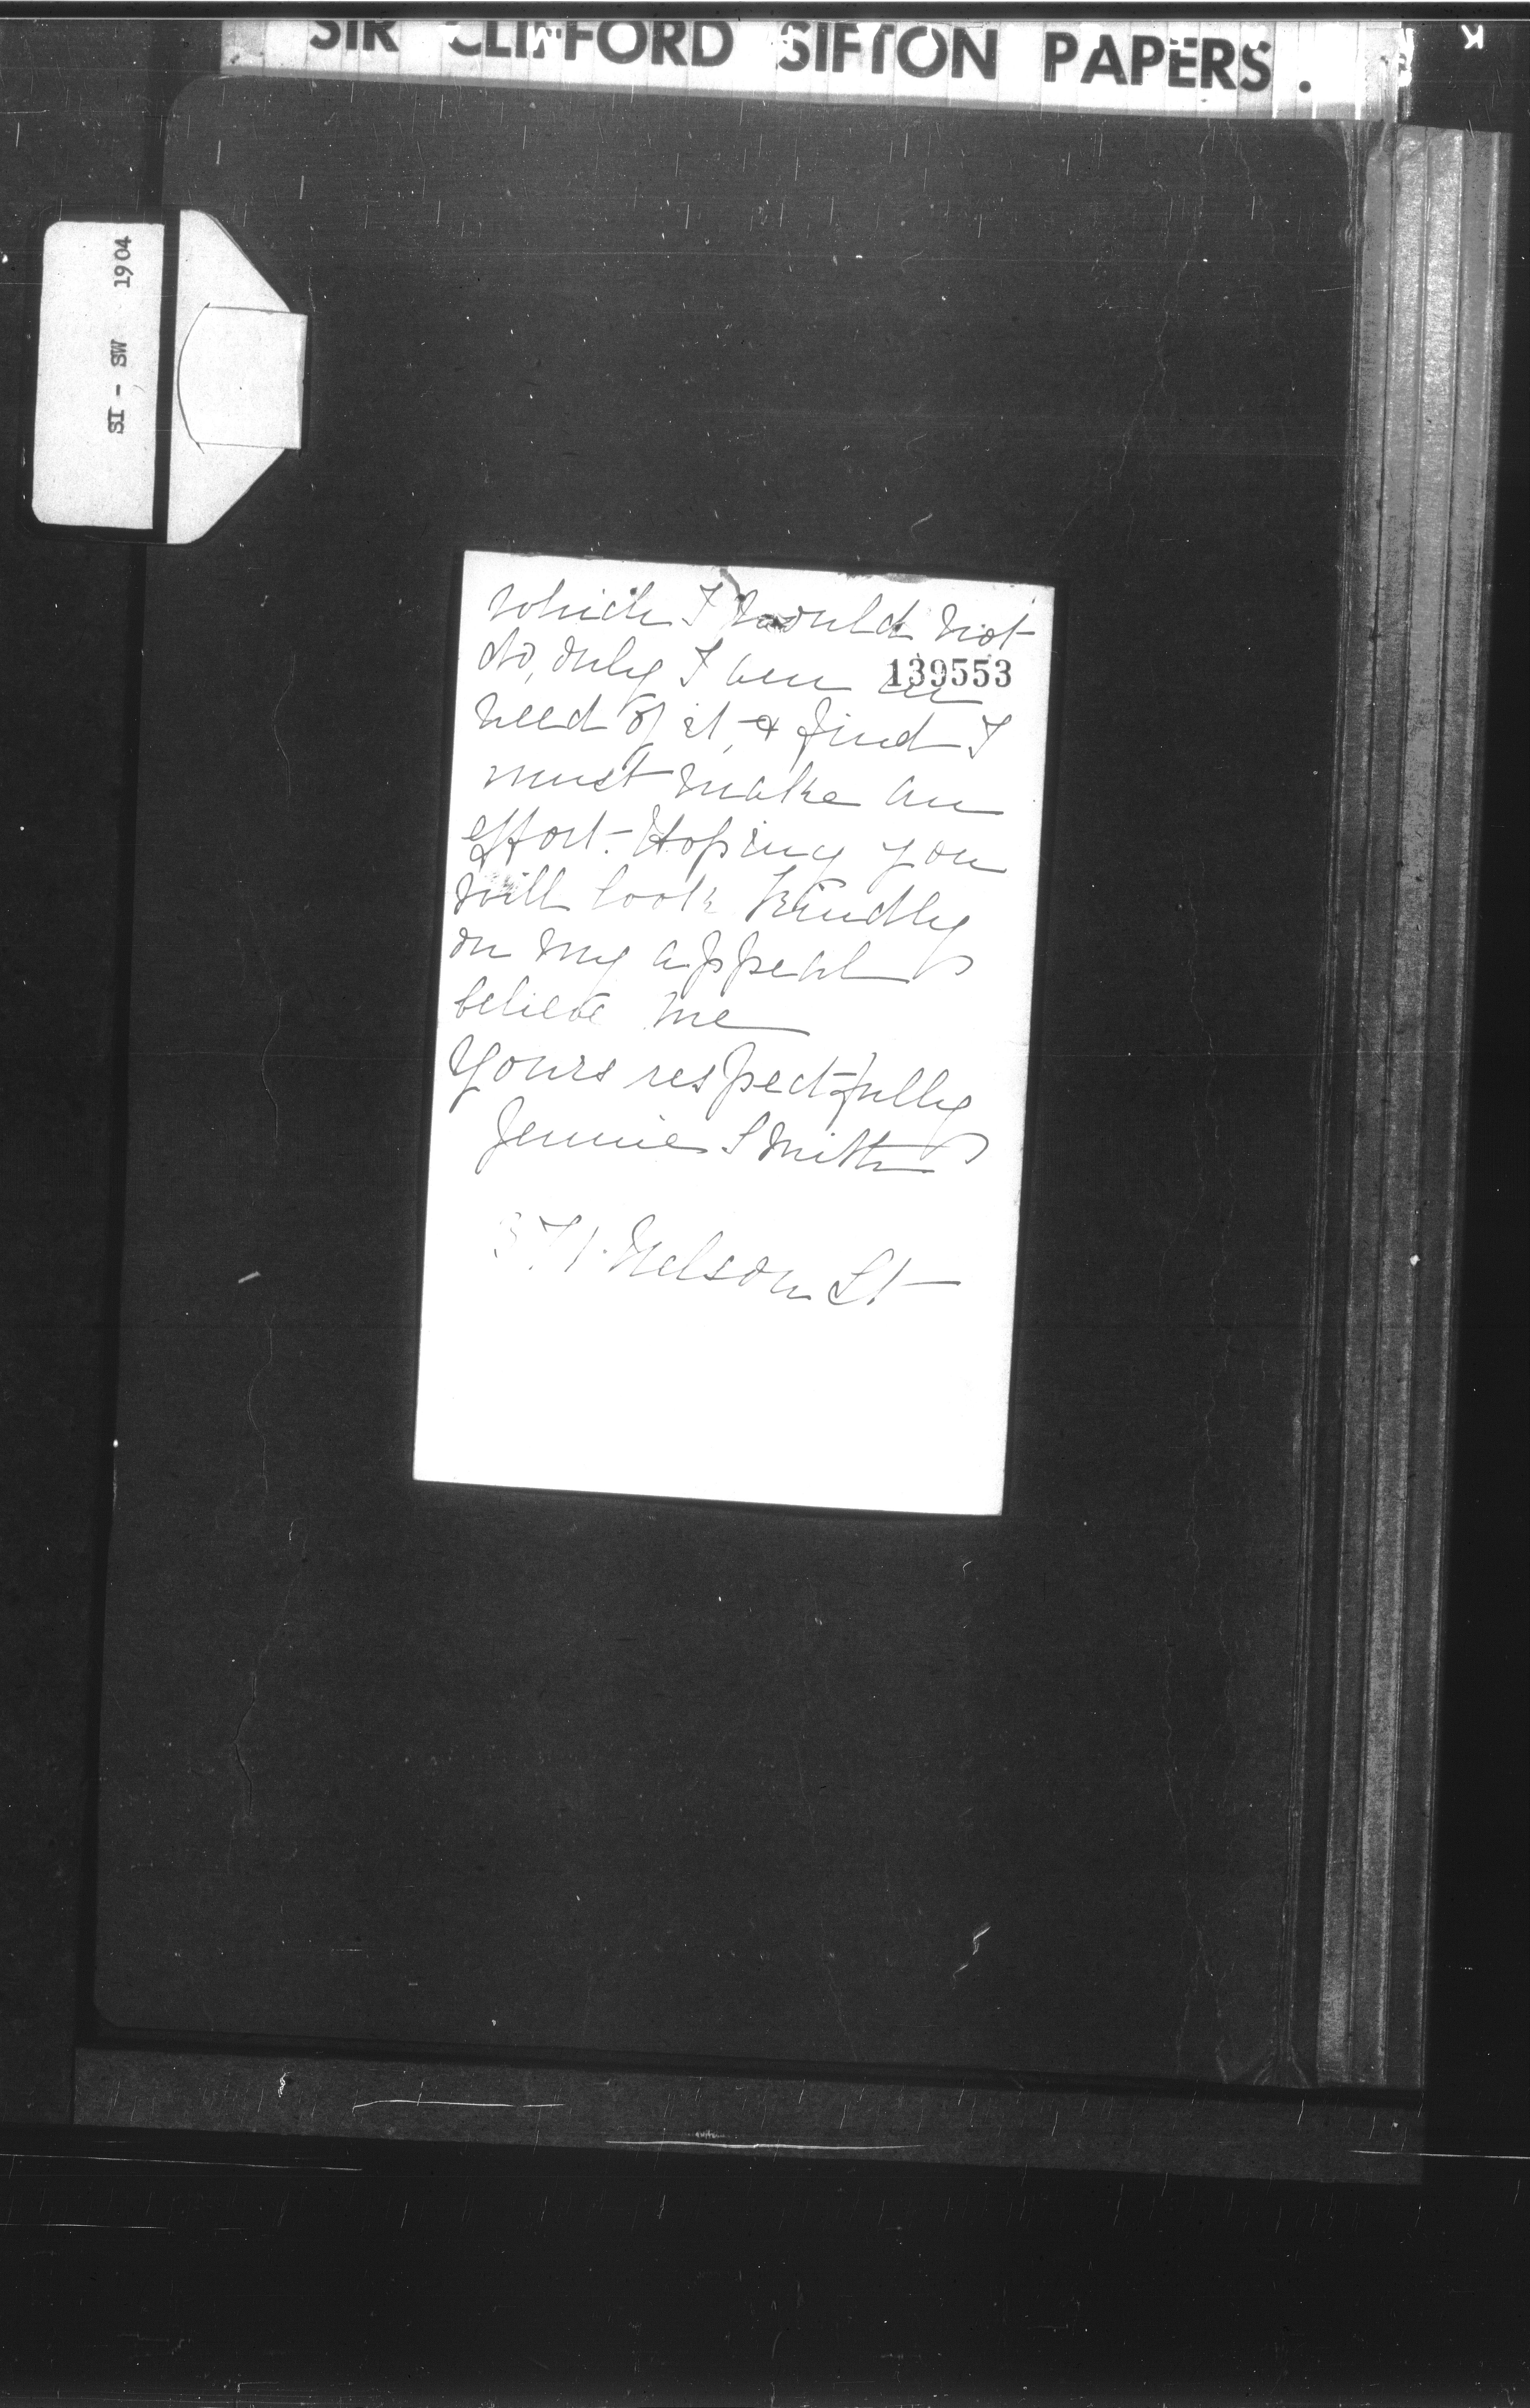 SIR CLIFFORD SIFTON PAPERS.
SI - SW 1904
which I would not
do, only I am in
139553
need of it, & find I
must make an
effort. Hoping you
will look kindly
on my appeal
believe me
Yours respectfully
Jennie Smith
371 Nelson St